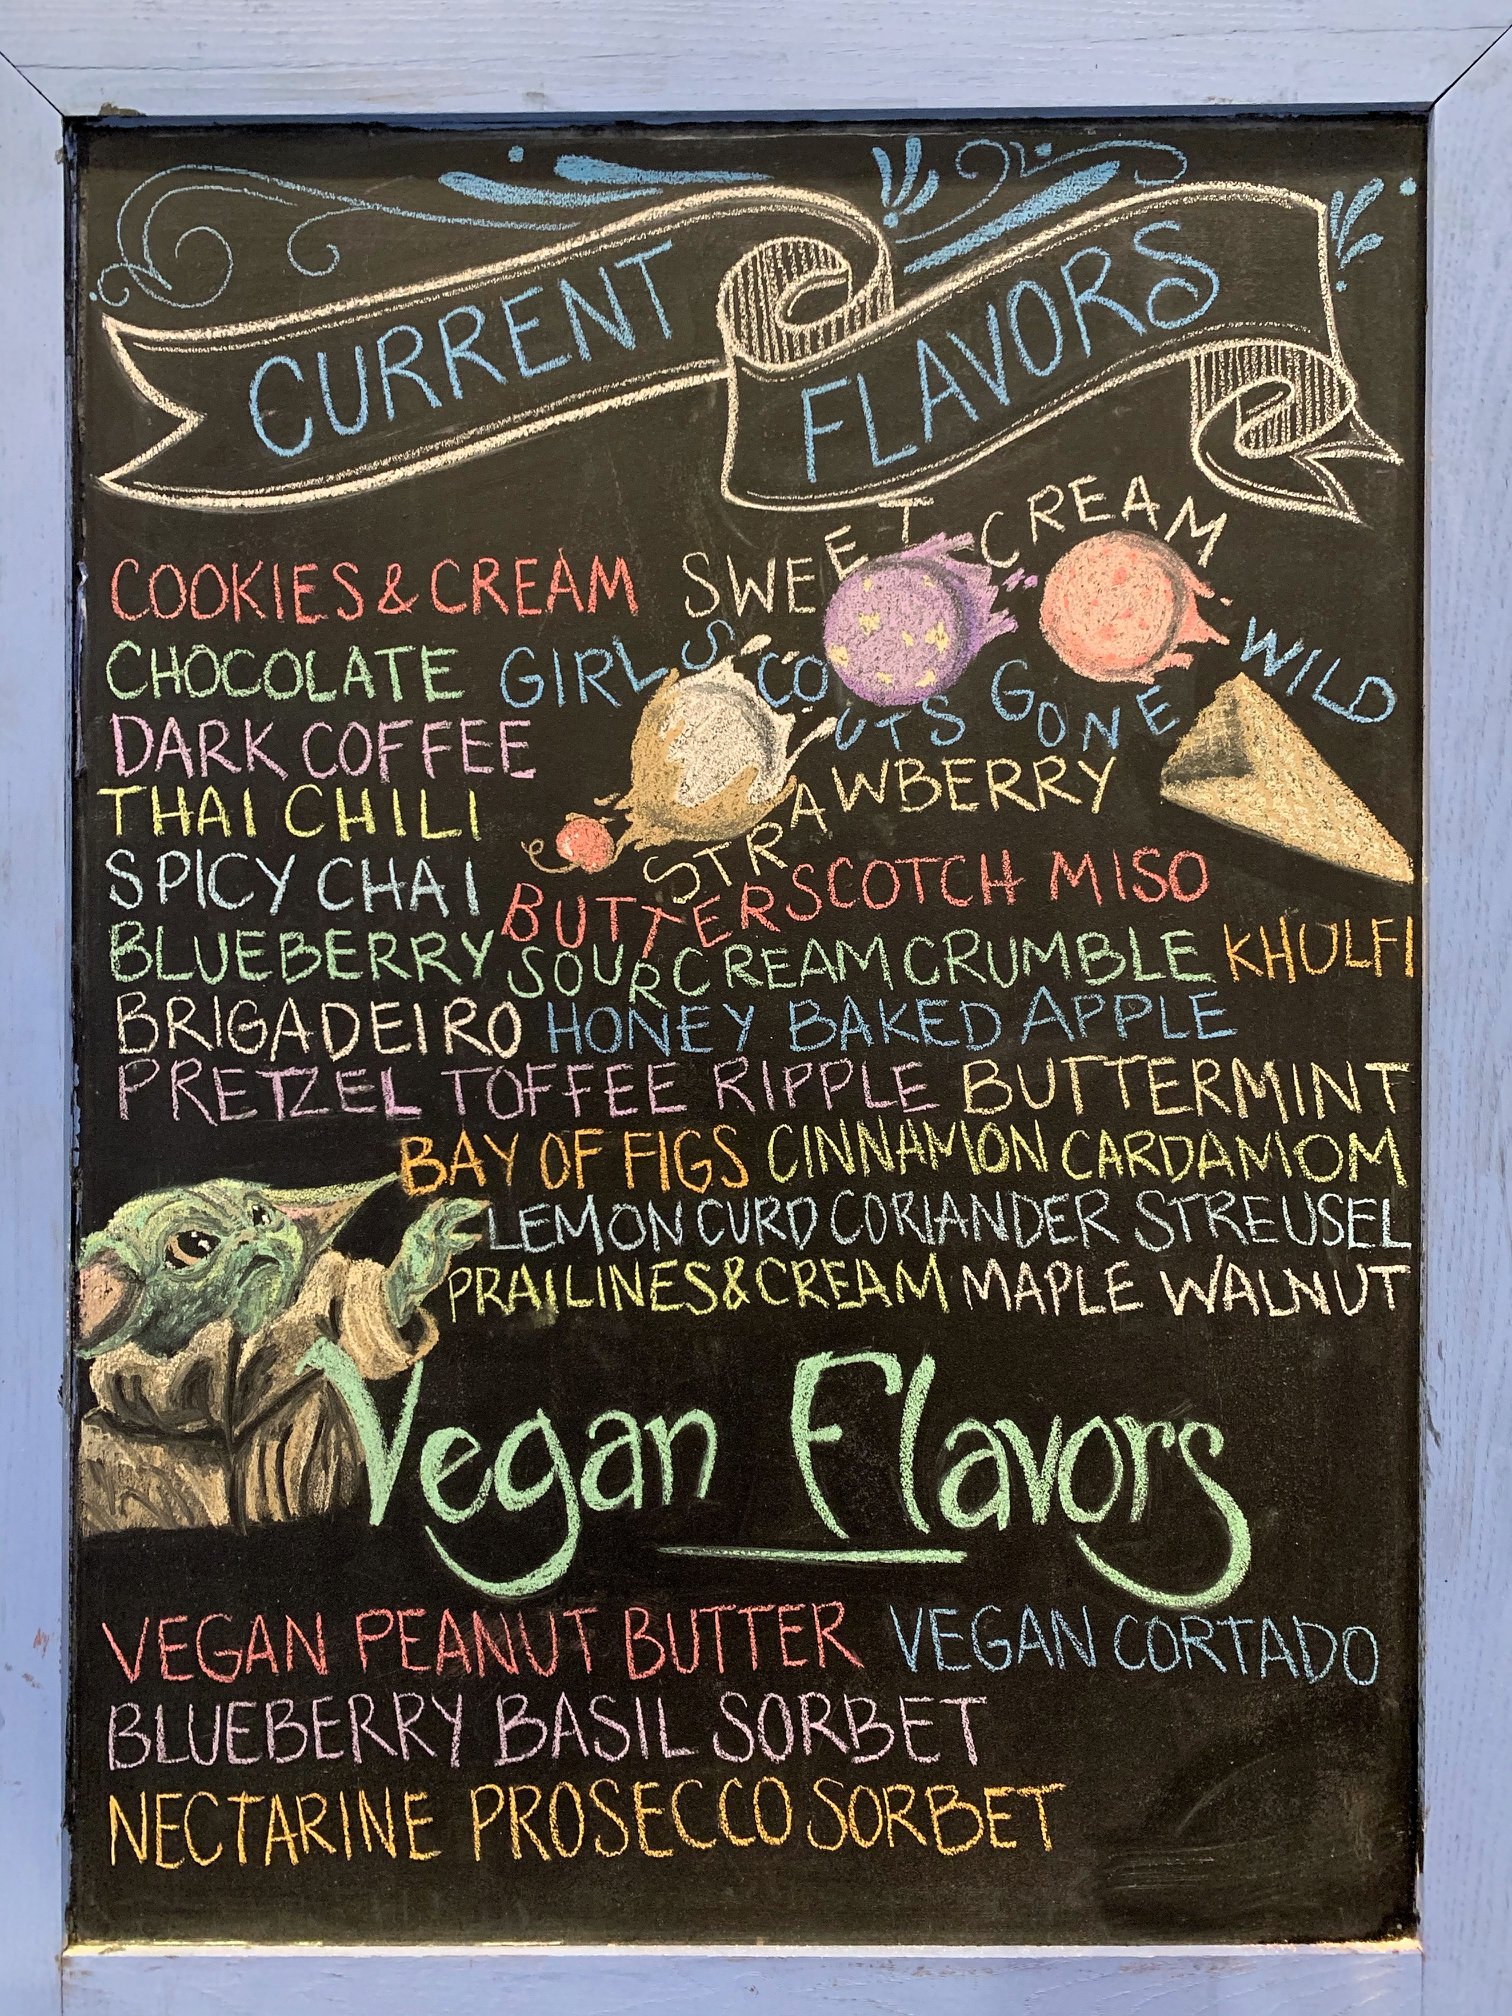 CURRENT FLAVORS
COOKIES & CREAM SWEET CREAM
CHOCOLATE GIRLS SCOUTS GONE WILD
DARK COFFEE
THAI CHILI STRAWBERRY
SPICY CHAI BUTTERSCOTCH MISO
BLUEBERRY SOUR CREAM CRUMBLE KHULFI
BRIGADEIRO HONEY BAKED APPLE
PRETZEL TOFFEE RIPPLE BUTTERMINT
BAY OF FIGS CINNAMON CARDAMOM
LEMON CURD CORIANDER STREUSEL
PRAILINES & CREAM MAPLE WALNUT
Vegan Flavors
VEGAN PEANUT BUTTER VEGAN CORTADO
BLUEBERRY BASIL SORBET
NECTARINE PROSECCO SORBET